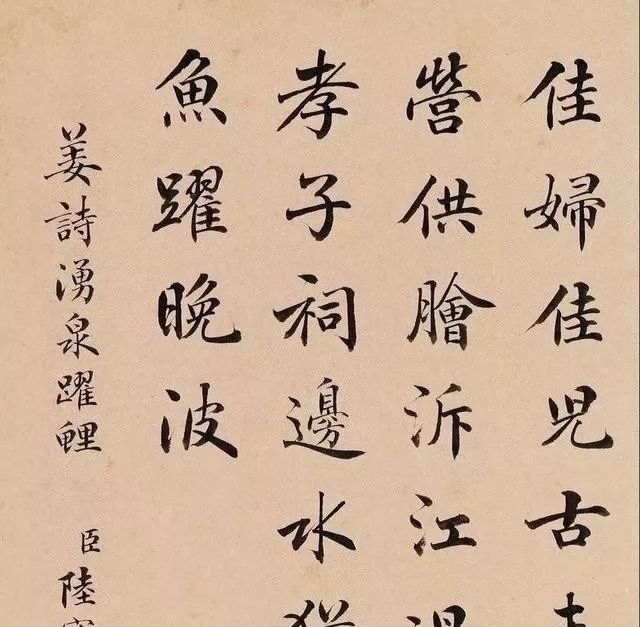 佳婦佳兒古
營供膾泝江
孝子祠邊水
魚躍晚波
姜詩湧泉躍鯉
臣陸